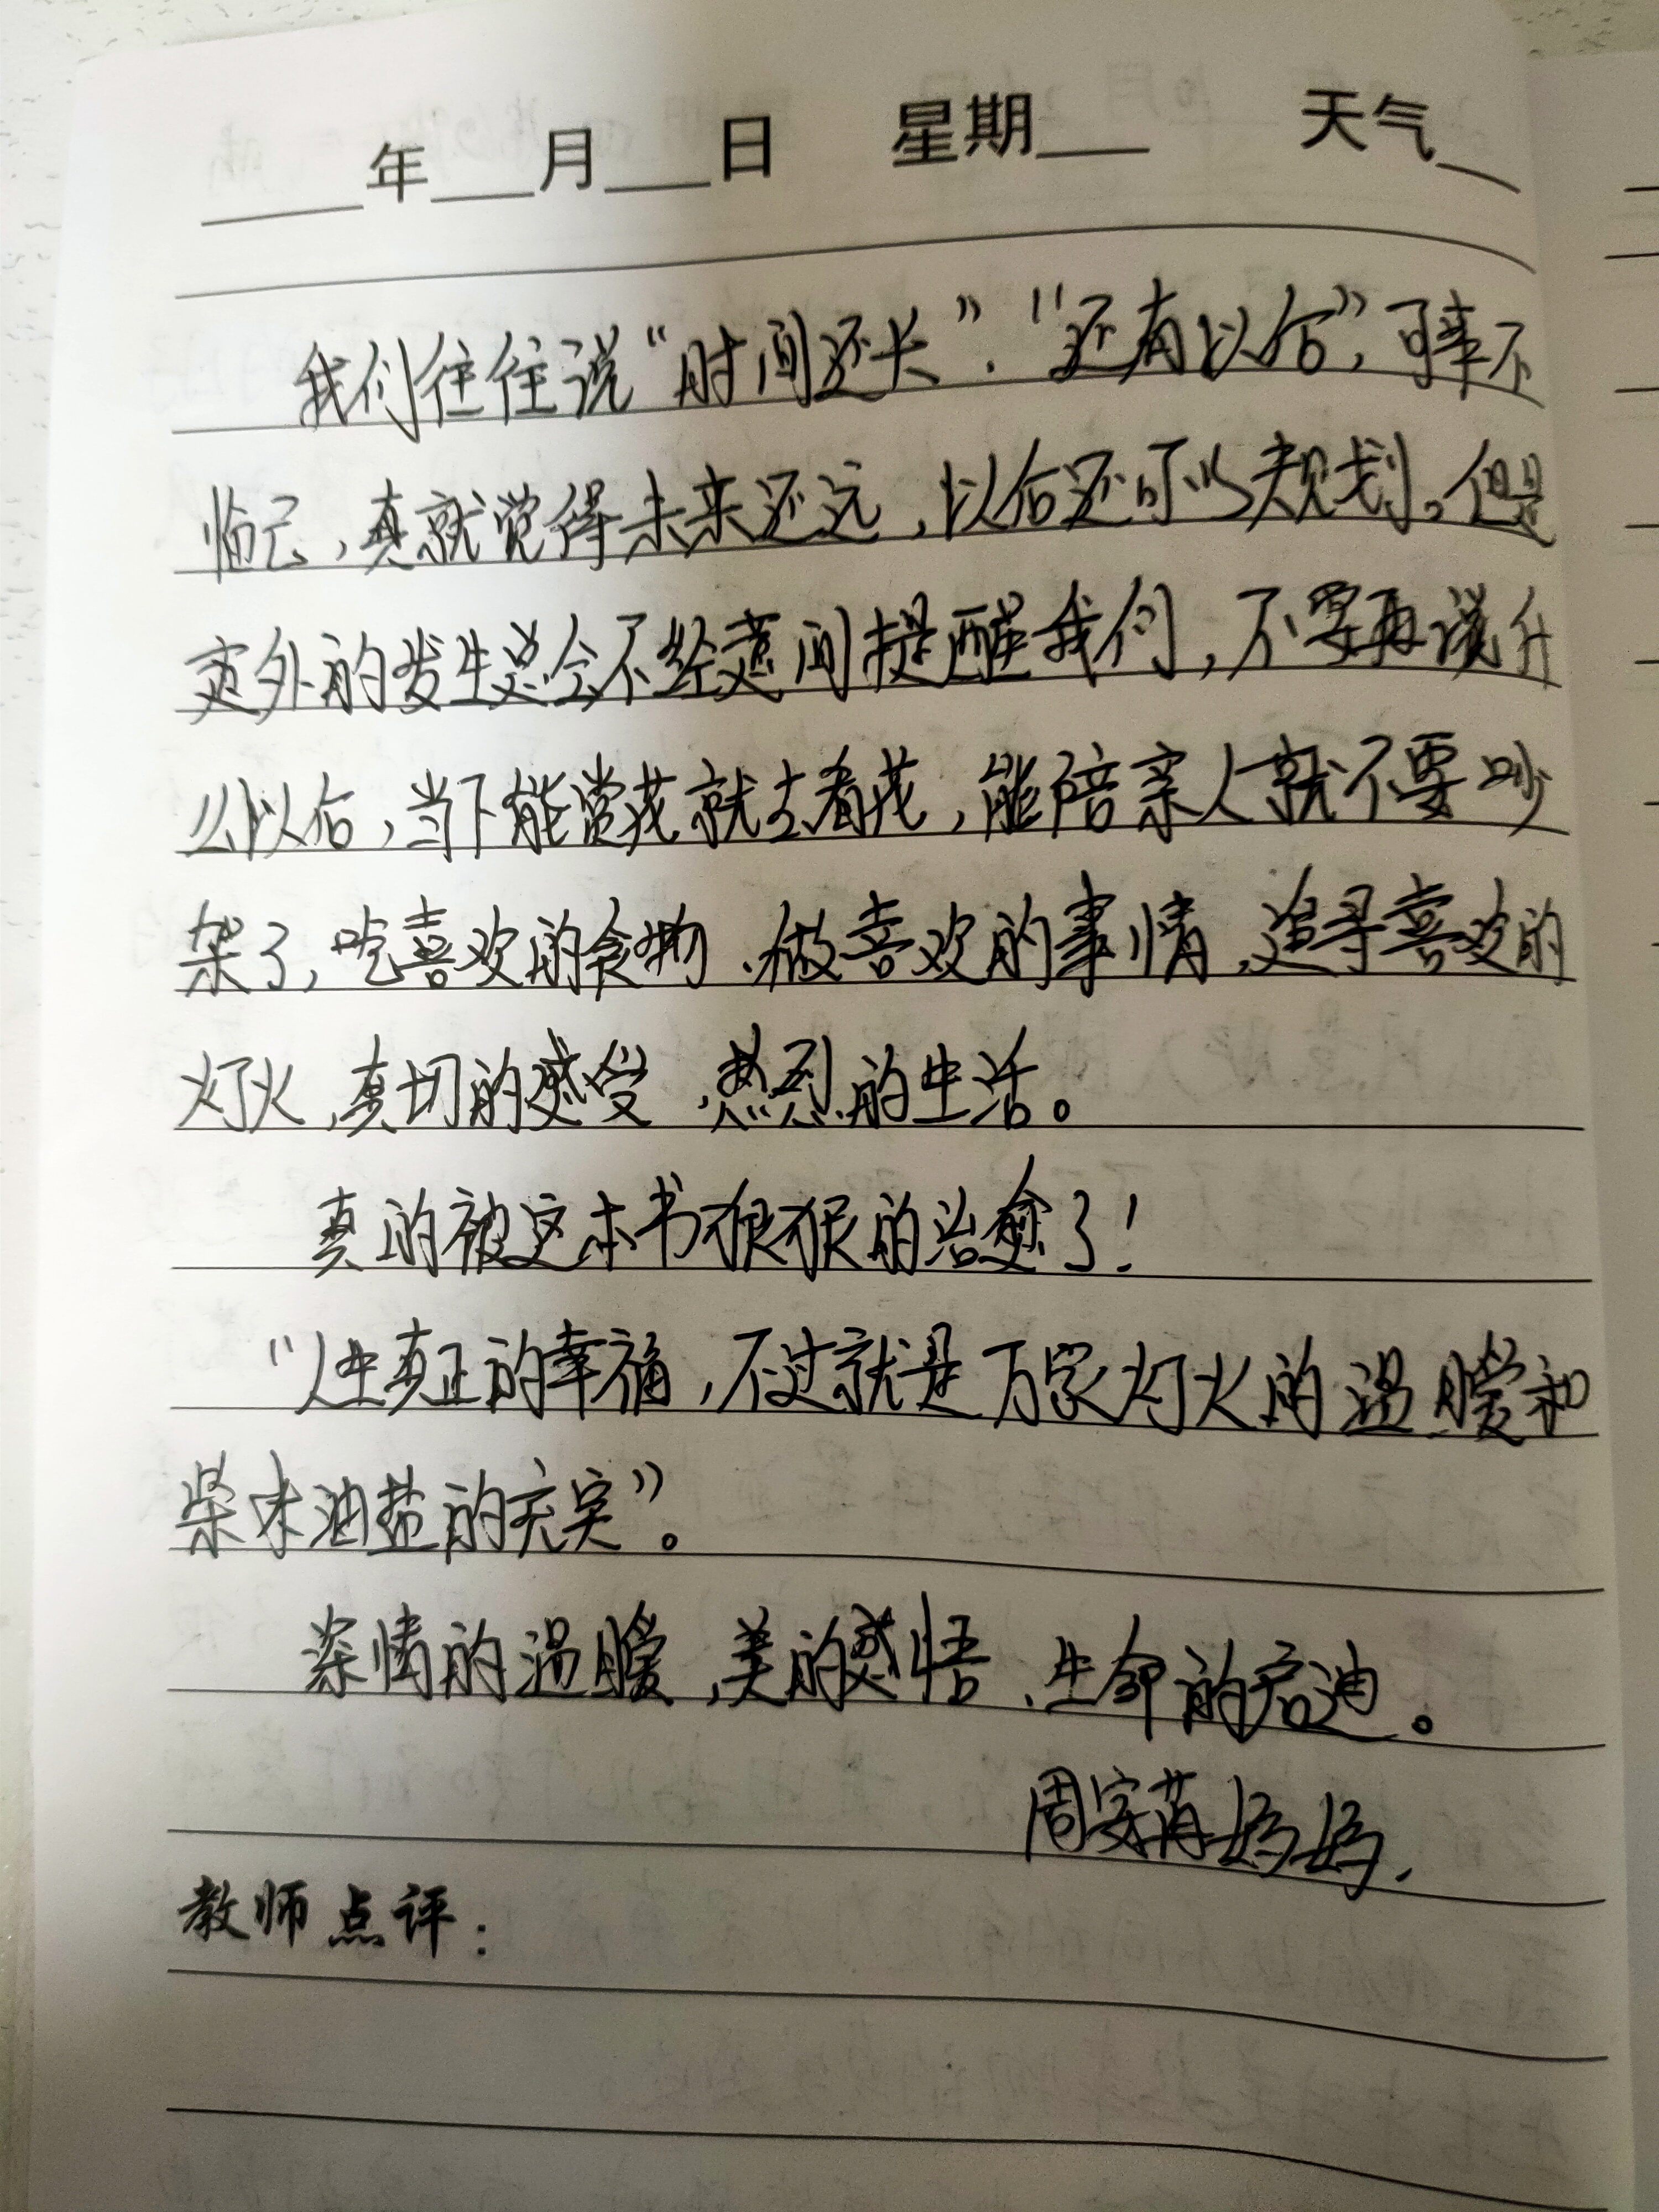 年 月 日 星期 天气
我们往往说“时间还长”、“还有以后”,可事不
临己,真就觉得未来还远,以后还可以规划。但是
意外的发生总会不经意间提醒我们,不要再谈什
么以后,当下能赏花就去看花,能陪亲人就不要吵
架了,吃喜欢的食物、做喜欢的事情、追寻喜欢的
灯火,真切的感受、热烈的生活。
真的被这本书狠狠的治愈了!
“人生真正的幸福,不过就是万家灯火的温暖和
柴米油盐的充实”。
深情的温暖、美的感悟、生命的启迪。
周安苒妈妈.
教师点评: